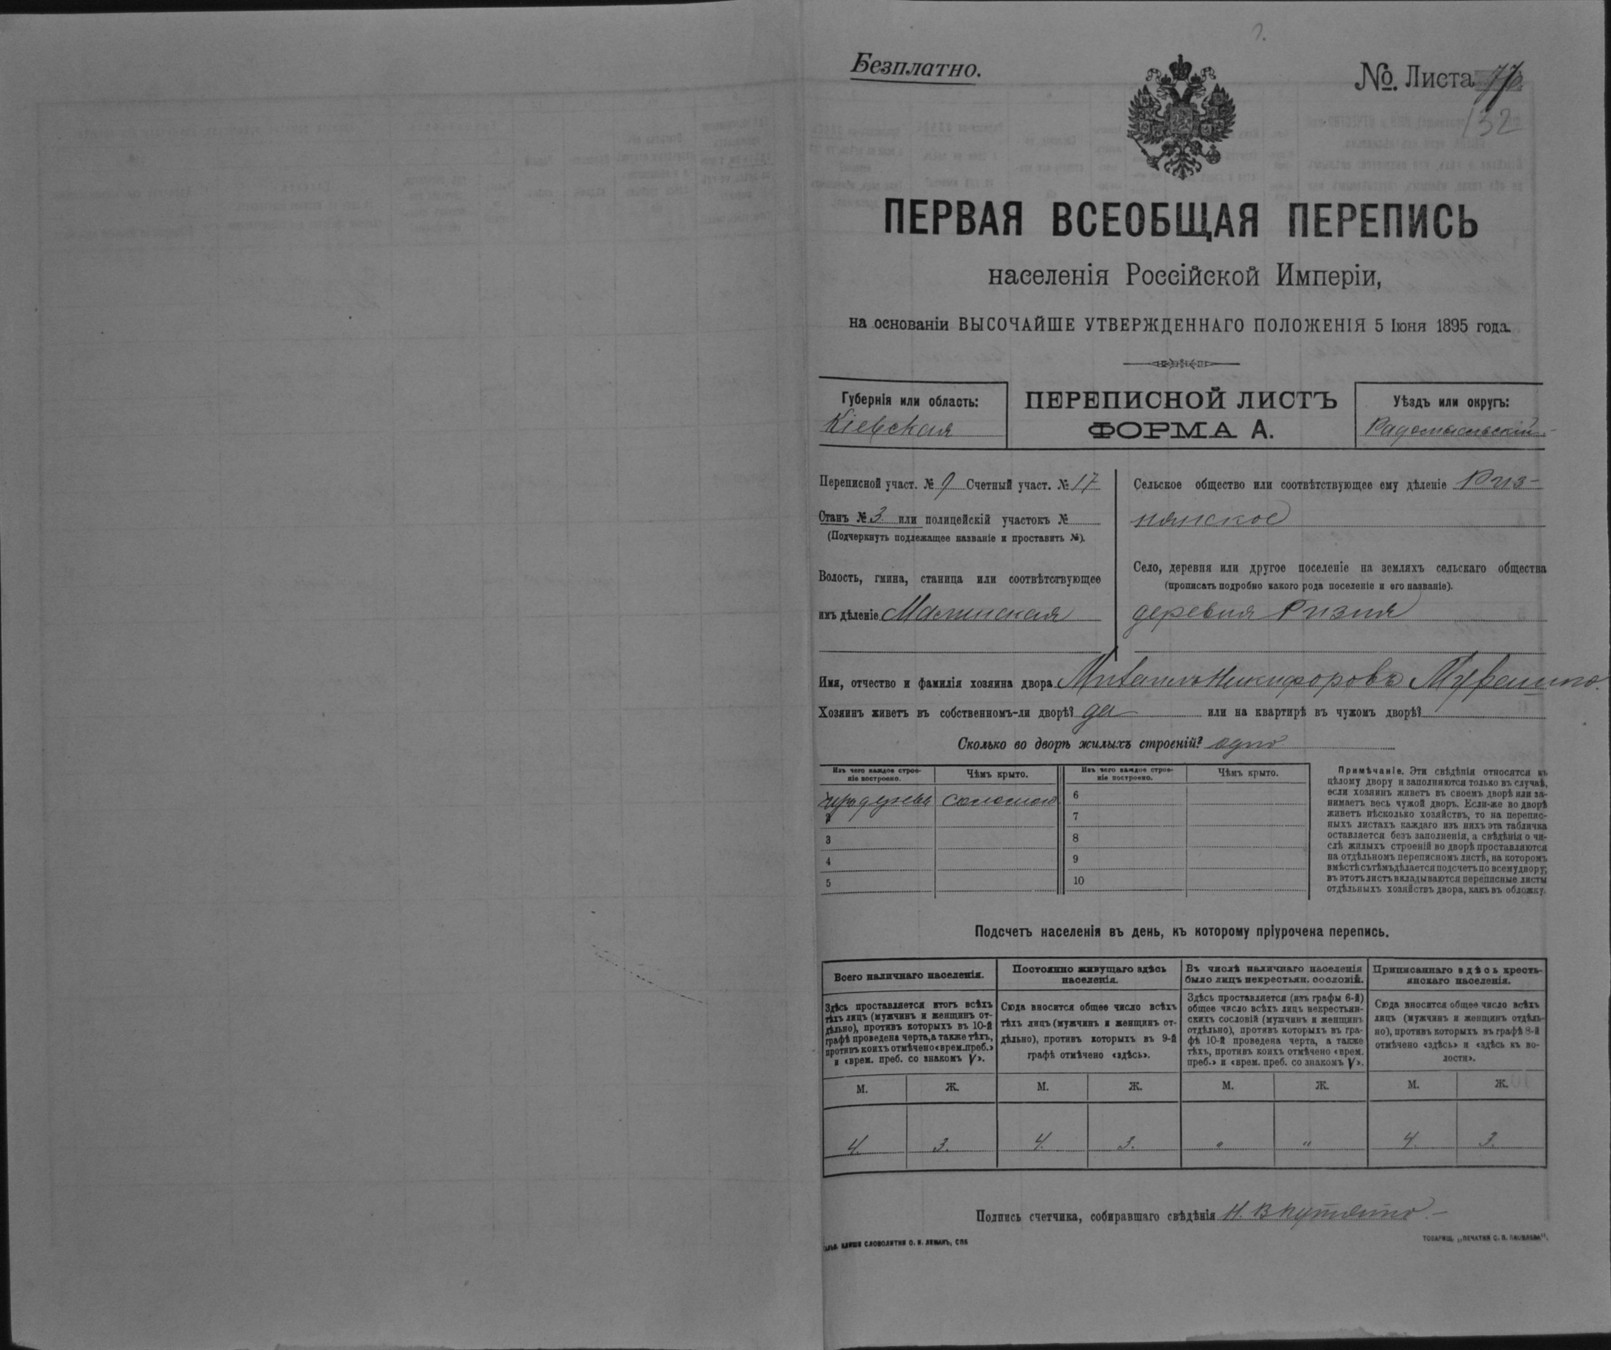 Безплатно.
№. Листа 77
132
ПЕРВАЯ ВСЕОБЩАЯ ПЕРЕПИСЬ
населенія Россійской Имперіи,
на основаніи ВЫСОЧАЙШЕ УТВЕРЖДЕННАГО ПОЛОЖЕНІЯ 5 Іюня 1895 года.
Губернія или область:
Кіевская
ПЕРЕПИСНОЙ ЛИСТЪ
ФОРМА А.
Уѣздъ или округъ:
Радомысльскій
Переписной участ. № 9 Счетный участ. № 17
Станъ № 3 или полицейскій участокъ №
(Подчеркнуть подлежащее названіе и проставить №).
Волость, гмина, станица или соотвѣтствующее
имъ дѣленіе Малинская
Сельское общество или соотвѣтствующее ему дѣленіе Риз-
нянское
Село, деревня или другое поселеніе на земляхъ сельскаго общества
(прописать подробно какого рода поселеніе и его названіе).
деревня Ризня
Имя, отчество и фамилія хозяина двора Михаилъ Никифоровъ Мурашко.
Хозяинъ живетъ въ собственномъ-ли дворѣ? да или на квартирѣ въ чужомъ дворѣ?
Сколько во дворѣ жилыхъ строеній? одно
Изъ чего каждое строе-
ніе построено.
Чѣмъ крыто.
Изъ чего каждое строе-
ніе построено.
Чѣмъ крыто.
соломою
2
3
4
5
6
7
8
9
10
Примѣчаніе. Эти свѣдѣнія относятся къ
цѣлому двору и заполняются только въ случаѣ,
если хозяинъ живетъ въ своемъ дворѣ или за-
нимаетъ весь чужой дворъ. Если-же во дворѣ
живетъ нѣсколько хозяйствъ, то на перепис-
ныхъ листахъ каждаго изъ нихъ эта табличка
оставляется безъ заполненія, а свѣдѣнія о чи-
слѣ жилыхъ строеній во дворѣ проставляются
на отдѣльномъ переписномъ листѣ, на которомъ
вмѣстѣ съ тѣмъ дѣлается подсчетъ по всему двору;
въ этотъ листъ вкладываются переписные листы
отдѣльныхъ хозяйствъ двора, какъ въ обложку.
Подсчетъ населенія въ день, къ которому пріурочена перепись.
Всего наличнаго населенія.
Здѣсь проставляется итогъ всѣхъ
тѣхъ лицъ (мужчинъ и женщинъ от-
дѣльно), противъ которыхъ въ 10-й
графѣ проведена черта, а также тѣхъ,
противъ коихъ отмѣчено «врем. преб.»
и «врем. преб. со знакомъ V».
М. Ж.
4. 3.
Постоянно живущаго здѣсь
населенія.
Сюда вносится общее число всѣхъ
тѣхъ лицъ (мужчинъ и женщинъ от-
дѣльно), противъ которыхъ въ 9-й
графѣ отмѣчено «здѣсь».
М. Ж.
4. 3.
Въ числѣ наличнаго населенія
было лицъ некрестьян. сословій.
Здѣсь проставляется (изъ графы 6-й)
общее число всѣхъ лицъ некрестьян-
скихъ сословій (мужчинъ и женщинъ
отдѣльно), противъ которыхъ въ гра-
фѣ 10-й проведена черта, а также
тѣхъ, противъ коихъ отмѣчено «врем.
преб.» и «врем. преб. со знакомъ V».
М. Ж.
" "
Приписаннаго здѣсь кресть-
янскаго населенія.
Сюда вносится общее число всѣхъ
лицъ (мужчинъ и женщинъ отдѣль-
но), противъ которыхъ въ графѣ 8-й
отмѣчено «здѣсь» и «здѣсь въ во-
лости».
М. Ж.
4. 3.
Подпись счетчика, собиравшаго свѣдѣнія
СЛОВОЛИТНИ О. И. ЛЕМАНЪ, СПБ
ТОВАРИЩ. „ПЕЧАТНИ С. П. ЯКОВЛЕВА".